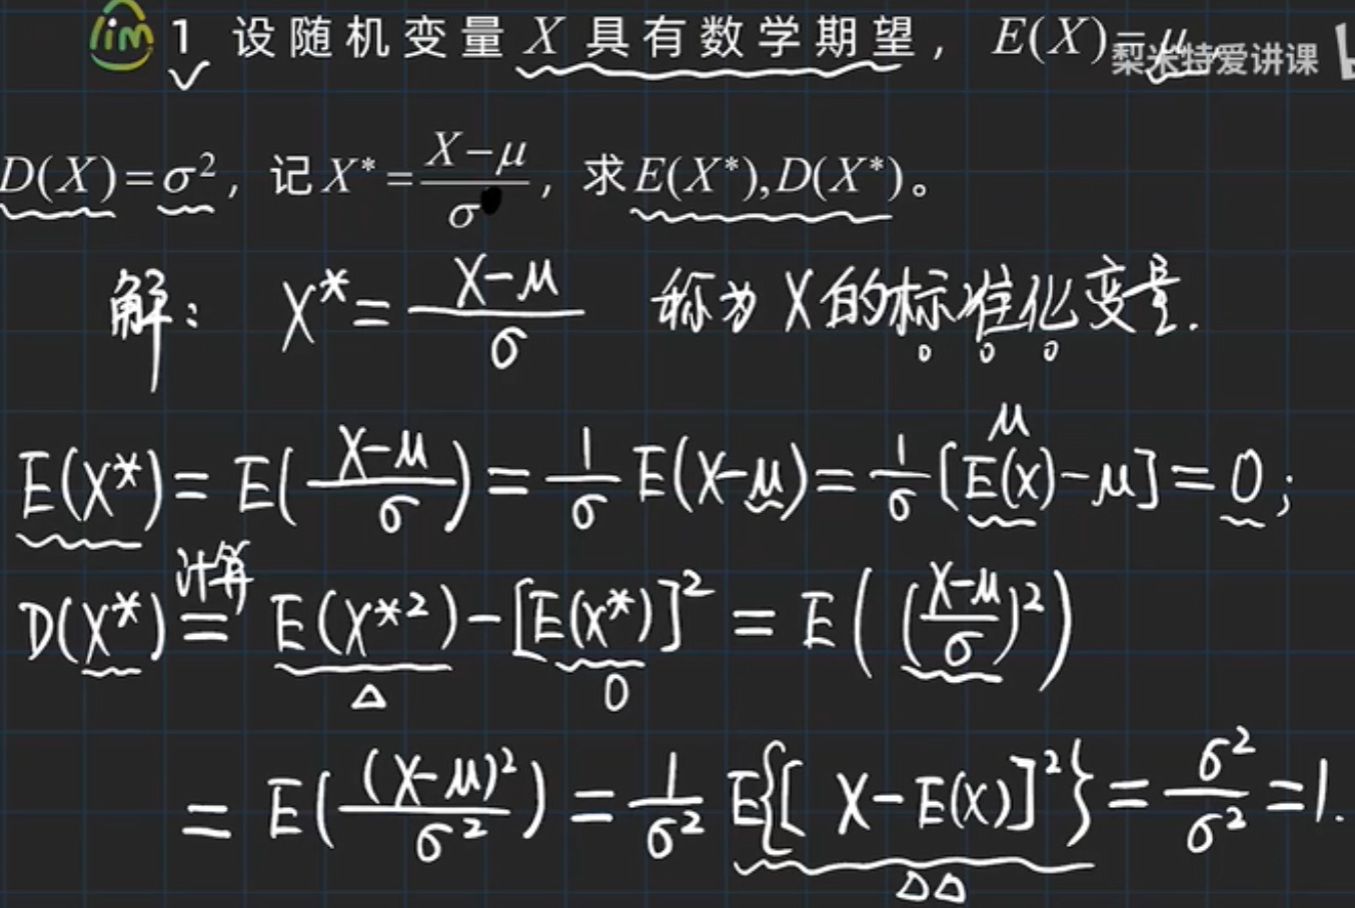 lim 1 设随机变量 X 具有数学期望， E(X)=μ，
梨米特爱讲课
D(X)=σ²，记 X*=(X−μ)/σ，求E(X*),D(X*)。
解： X*= (X−μ)/σ 称为X的标准化变量.
μ
E(X*)= E((X−μ)/σ)= 1/σ E(X−μ)= 1/σ [E(x)−μ]=0；
计算
D(X*) = E(X*²)−[E(x*)]² = E(((X−μ)/σ)²)
Δ 0
= E((X−μ)²/σ²) = 1/σ² E{[X−E(x)]²}= σ²/σ² =1.
ΔΔ